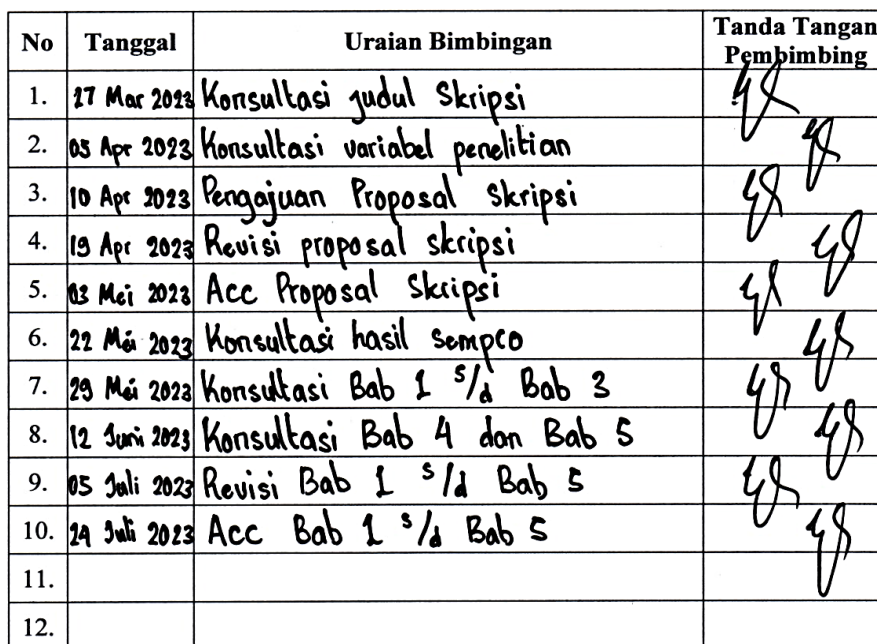 No Tanggal Uraian Bimbingan Tanda Tangan Pembimbing
1. 27 Mar 2023 Konsultasi judul Skripsi
2. 05 Apr 2023 Konsultasi variabel penelitian
3. 10 Apr 2023 Pengajuan Proposal Skripsi
4. 19 Apr 2023 Revisi proposal skripsi
5. 03 Mei 2023 Acc Proposal Skripsi
6. 22 Mei 2023 Konsultasi hasil sempro
7. 29 Mei 2023 Konsultasi Bab 1 s/d Bab 3
8. 12 Juni 2023 Konsultasi Bab 4 dan Bab 5
9. 05 Juli 2023 Revisi Bab 1 s/d Bab 5
10. 24 Juli 2023 Acc Bab 1 s/d Bab 5
11.
12.